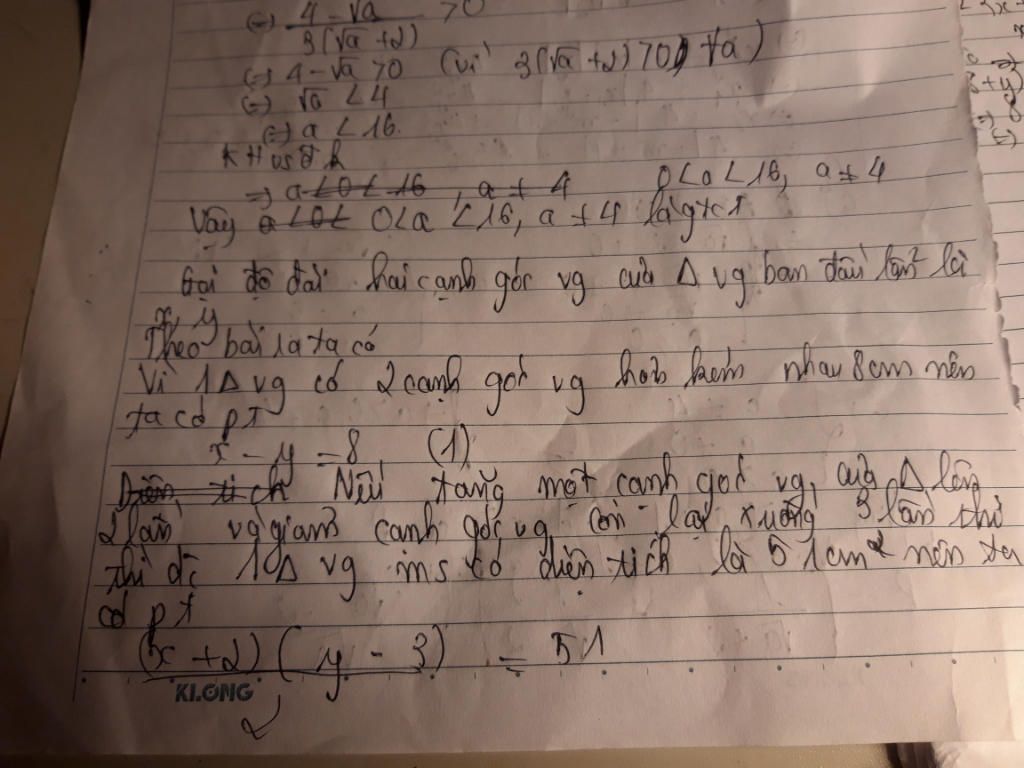 (=) 4-√a / 3(√a +2) >0
(=) 4-√a >0 (vì 3(√a +2) >0, ∀a)
(=) √a < 4
(=) a < 16.
KH vs đ k
=> a<0< 16, a ≠ 4 0<a<16, a ≠ 4
Vậy a<0< 0<a <16, a ≠ 4 là gtct
Gọi độ dài hai cạnh góc vg của Δ vg ban đầu lần lượt là
x, y
Theo bài ra ta có
Vì 1Δ vg có 2 cạnh góc vg hơn kém nhau 8cm nên
ta có pt
x - y = 8 (1)
Diện tích Nếu tăng một cạnh góc vg của Δ lên
2 lần và giảm cạnh góc vg còn lại xuống 3 lần thì
thì đc 1Δ vg ms có diện tích là 51cm² nên ta
có pt
(x +2) ( y - 3) = 51
KLONG
2